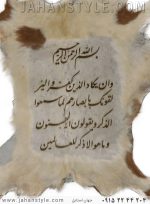 © JAHANSTYLE.COM
بسم الله الرحمن الرحیم
وان یکاد الذین کفروا لیز
لقونک بابصارهم لما سمعوا
الذکر و یقولون انه لمجنون
و ما هو الا ذکر للعالمین
www.jahanstyle.com
جهان استایل
۰۹۱۵ ۲۲ ۴۴ ۲۰۲